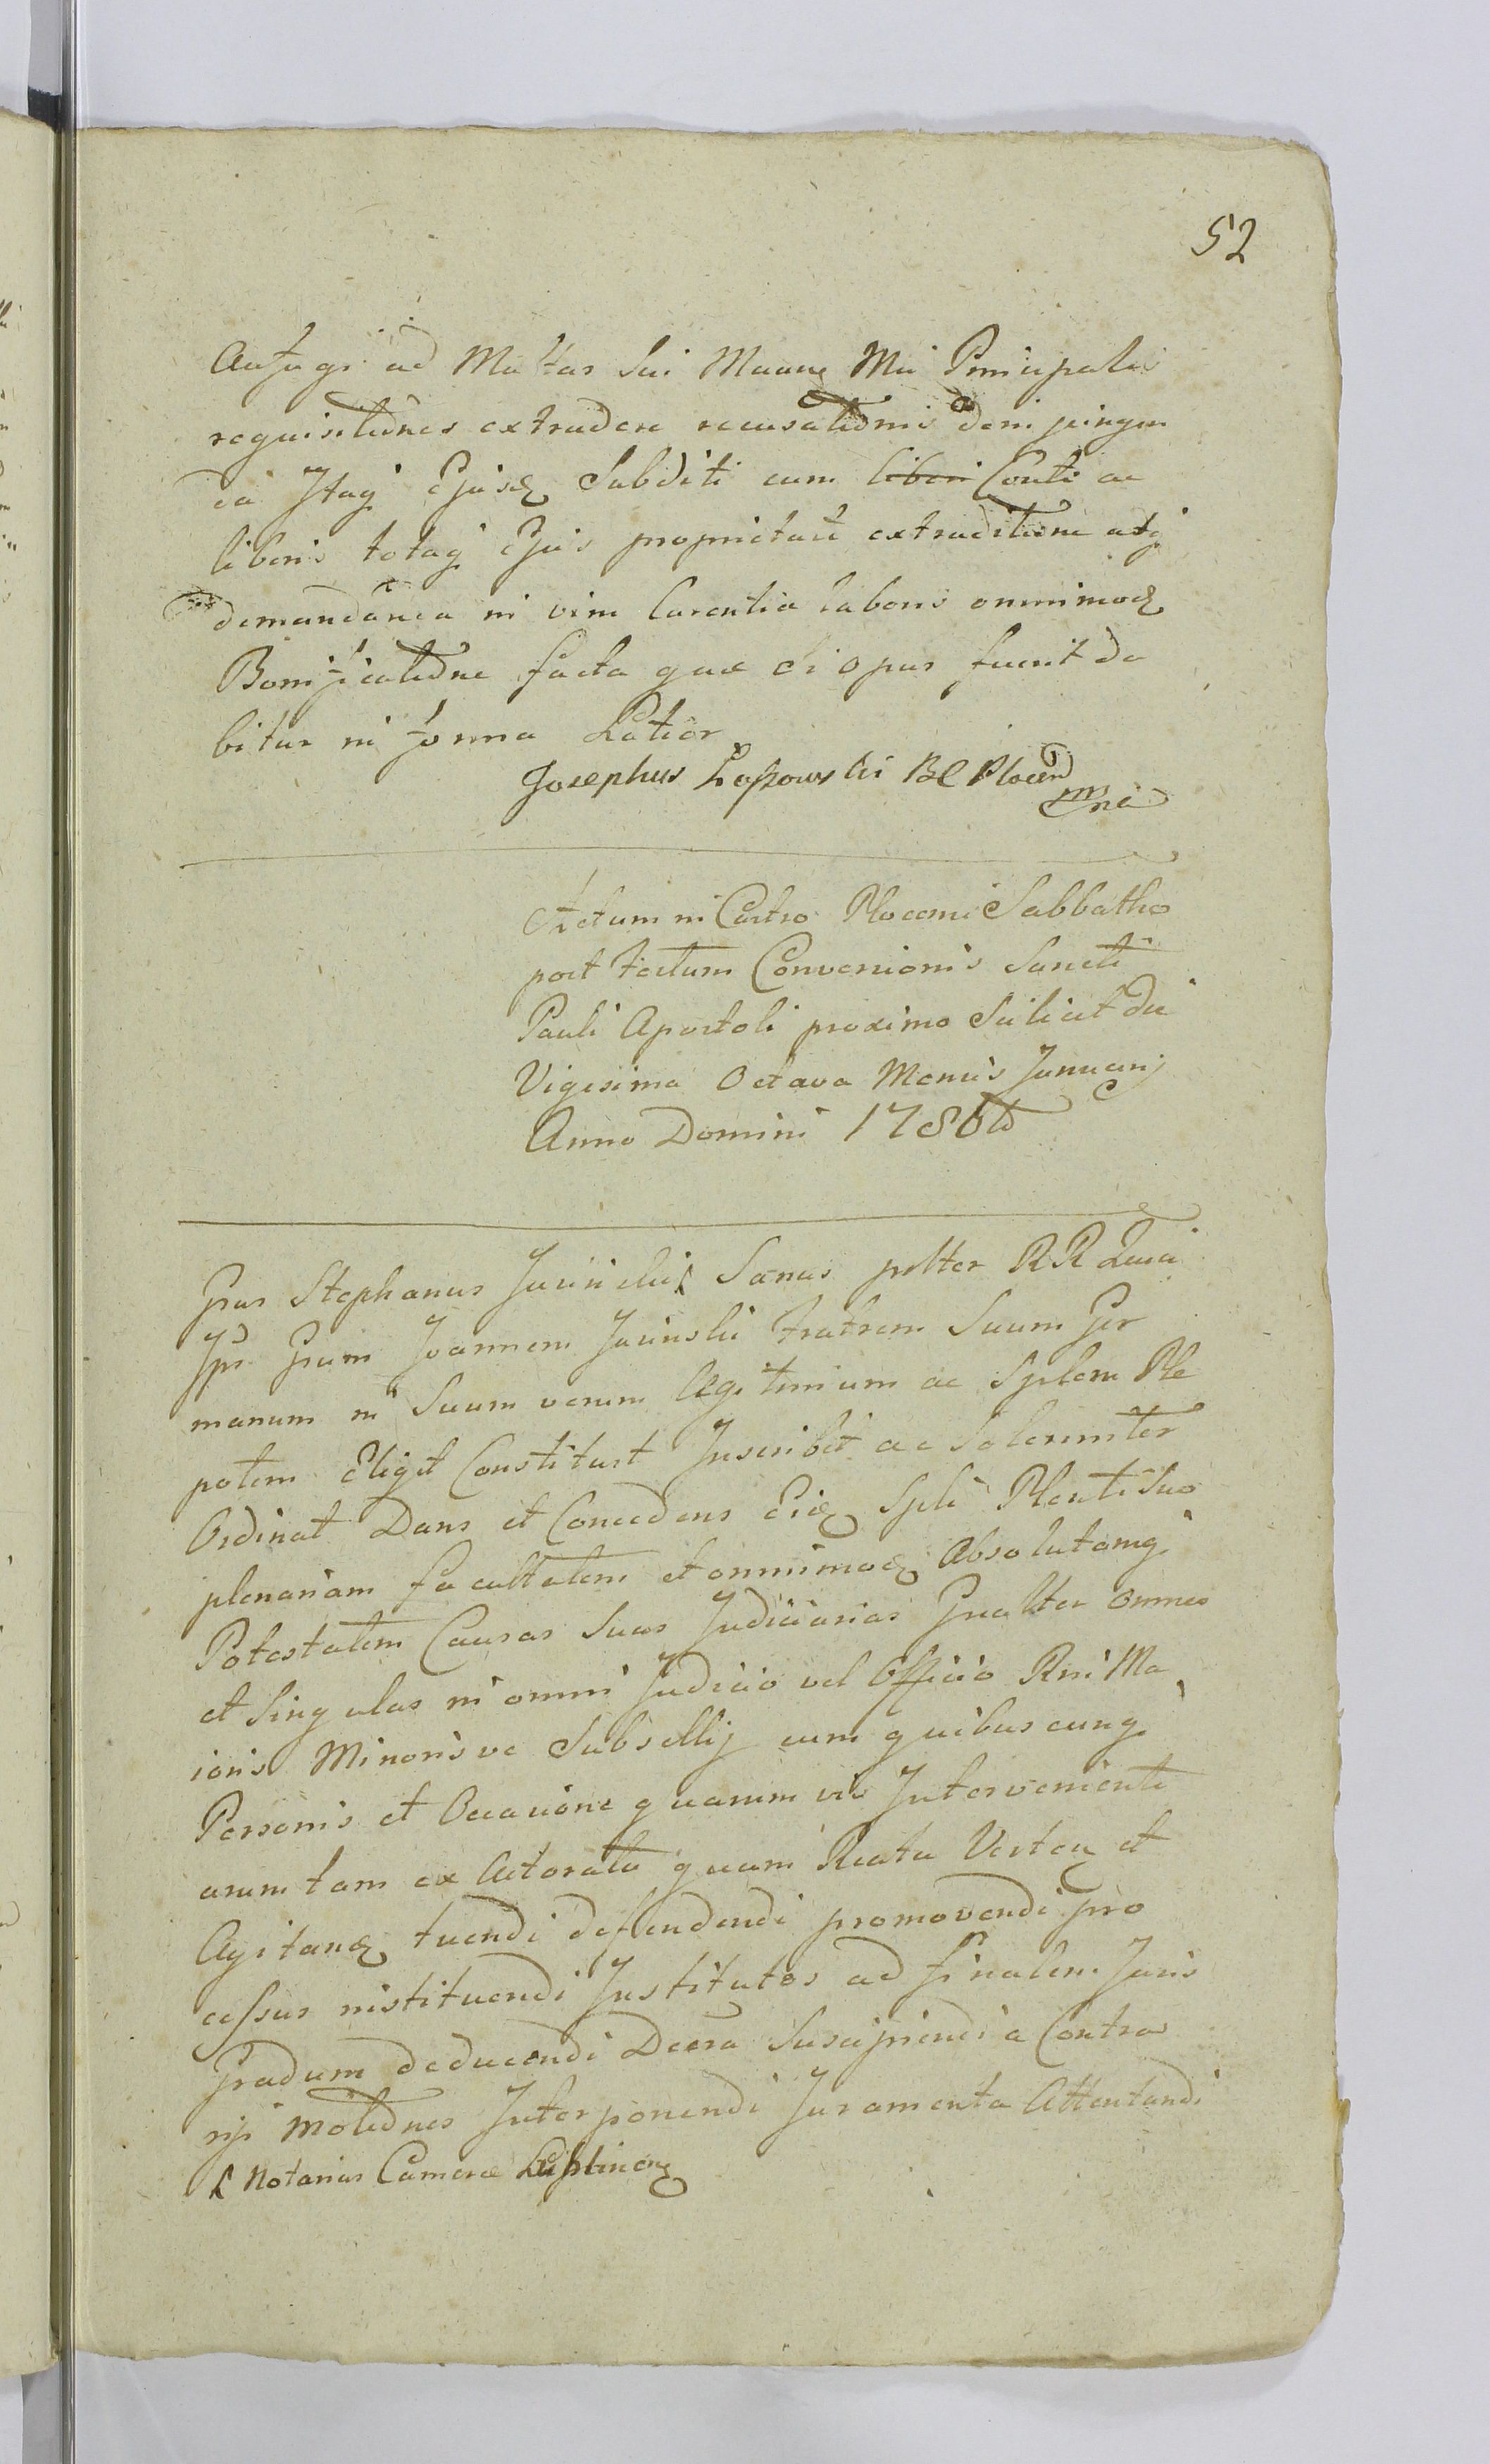 52
Aufugi ad Multas Sui Principalis
requisitiones extradere recusationis
ea Itaq Ejusd Subditi cum liberi Conti ac
liberis totaq Ejus proprietate extraditione atq
demandanda in vim Carentia laboris omnimod
Bonificatione facta quae ei opus fuerit da
bitur in forma Latior
Josephus Łossowski BC Plocen
mpria
Actum in Castro Plocensi Sabbatho
post Festum Conversionis Sancti
Pauli Apostoli proximo Scilicet Die
Vigesima Octava Mensis Januarij
Anno Domini 1786to
Grsus Stephanus Jasinski Sanus prltter RR Quia
Ips Grsum Joannem Jasinski Fratrem Suum Ger
manum in Suum verum Legitimum ac Splem Ple
potem Eligit Constituit Inscribit ac Solemniter
Ordinat Dans et Concedens Eid Spli Plenti Suo
plenariam facultatem et omnimod Absolutamq
Potestatem Causas Suas Judiciarias Gnaliter omnes
et Singulas in omni Judicio vel Officio Rni Ma
joris Minorisve Subsellij cum quibuscunq
Personis et Occasione quarumvis Intervenienti
arum tam ex Actoratu quam Reatu Verten et
Agitand tuendi defendendi promovendi pro
cessus instituendi Institutos ad finalem Juris
Gradum deducendi Decra Suscipiendi a Contra
rijs motiones Interponendi Juramenta Attentandi
Notarius Camerae